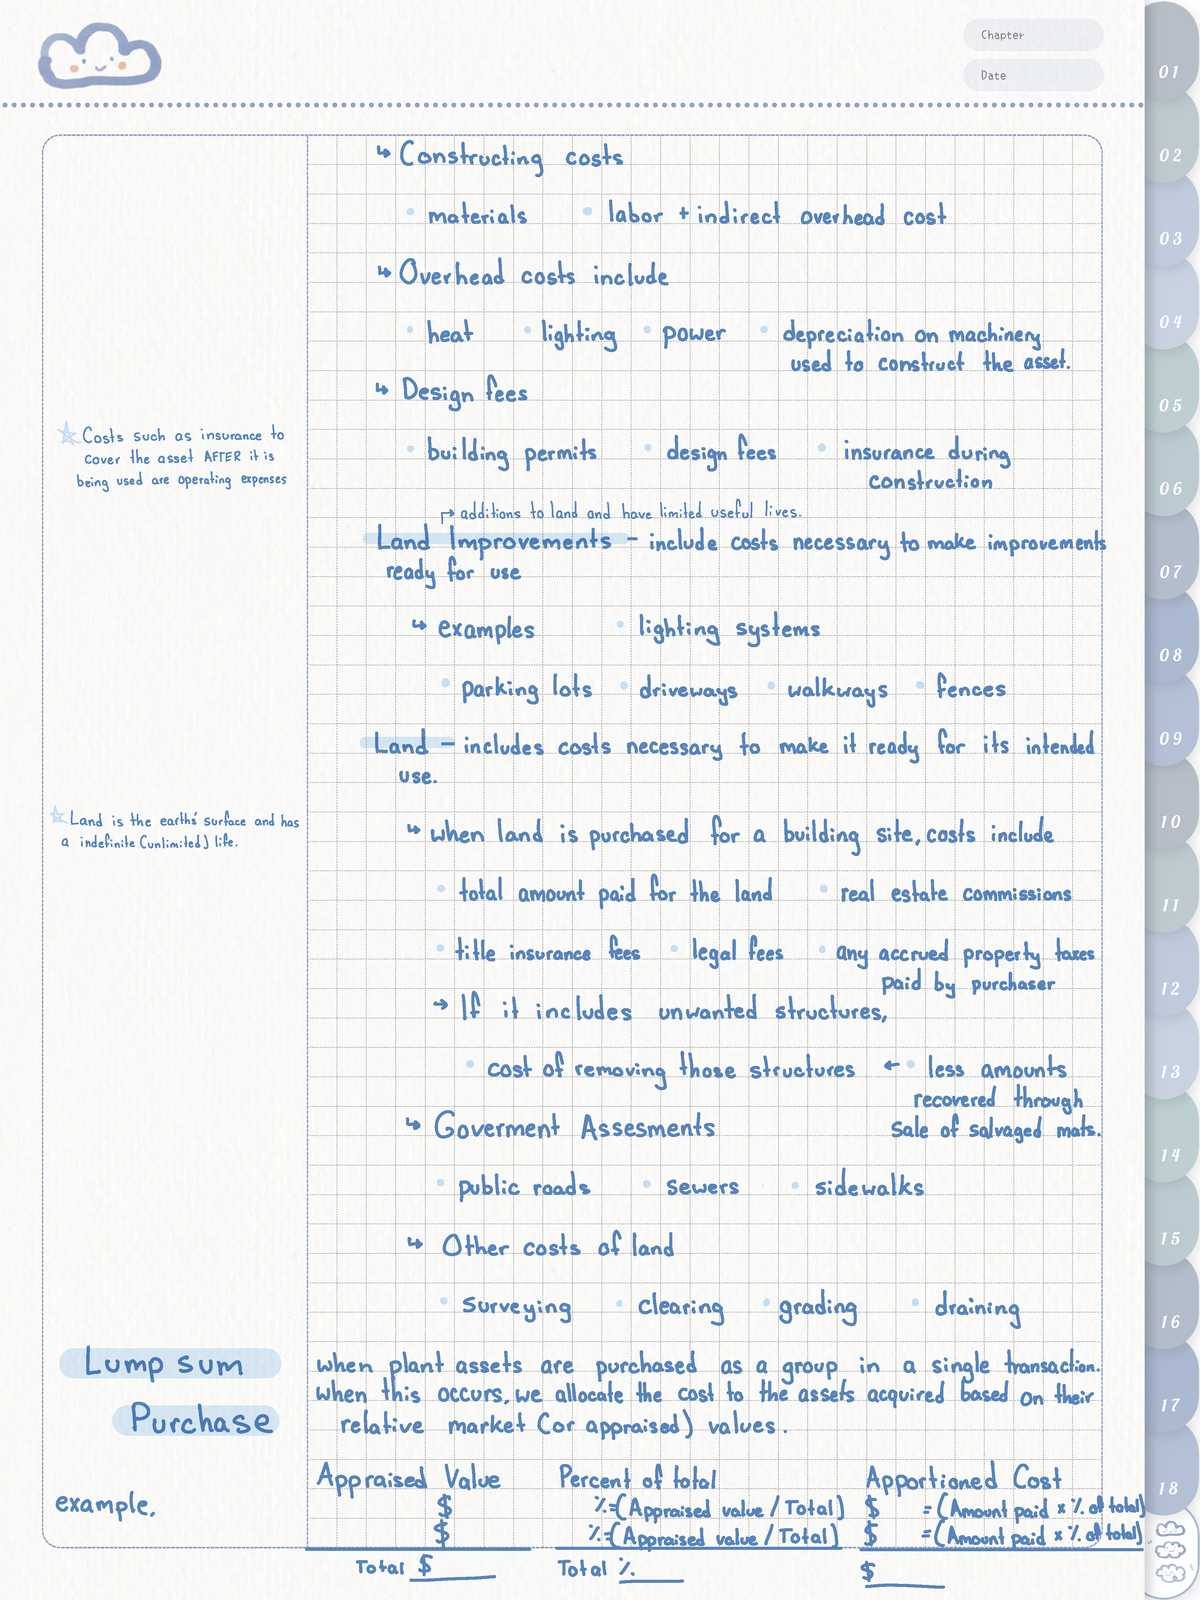 Chapter
Date
01
02
03
04
05
06
07
08
09
10
11
12
13
14
15
16
17
18
↳ Constructing costs
• materials • labor + indirect overhead cost
↳ Overhead costs include
• heat • lighting • power • depreciation on machinery
used to construct the asset.
↳ Design fees
☆ Costs such as insurance to
cover the asset AFTER it is
being used are operating expenses
• building permits • design fees • insurance during
construction
↱ additions to land and have limited useful lives.
Land Improvements – include costs necessary to make improvements
ready for use
↳ examples • lighting systems
• parking lots • driveways • walkways • fences
Land – includes costs necessary to make it ready for its intended
use.
☆ Land is the earths' surface and has
a indefinite (unlimited) life.
↳ when land is purchased for a building site, costs include
• total amount paid for the land • real estate commissions
• title insurance fees • legal fees • any accrued property taxes
paid by purchaser
→ If it includes unwanted structures,
• cost of removing those structures ← • less amounts
recovered through
sale of salvaged mats.
↳ Goverment Assesments
• public roads • sewers • sidewalks
↳ Other costs of land
• Surveying • clearing • grading • draining
Lump sum
Purchase
when plant assets are purchased as a group in a single transaction.
when this occurs, we allocate the cost to the assets acquired based on their
relative market (or appraised) values.
example.
Appraised Value Percent of total Apportioned Cost
$ %=(Appraised value / Total) $ =(Amount paid x % of total)
$ %=(Appraised value / Total) $ =(Amount paid x % of total)
Total $ Total % $